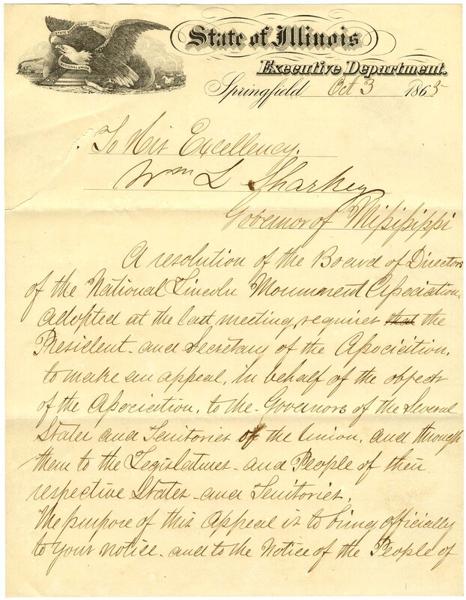 State of Illinois
Executive Department.
Springfield Oct 3 1865
To His Excellency.
Wm L Sharkey
Governor of Mississippi
A resolution of the Board of Directors
of the National Lincoln Monument Association,
adopted at the last meeting, requires that the
President and Secretary of the Association,
to make an appeal, in behalf of the objects
of the Association, to the Governors of the Several
States and Territories of the Union, and through
them to the Legislatures and People of their
respective States and Territories.
The purpose of this Appeal is to bring officially
to your notice and to the Notice of the People of